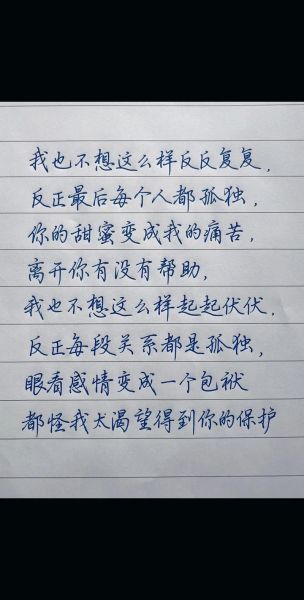 我也不想这么样反反复复，
反正最后每个人都孤独，
你的甜蜜变成我的痛苦，
离开你有没有帮助，
我也不想这么样起起伏伏，
反正每段关系都是孤独，
眼看感情变成一个包袱
都怪我太渴望得到你的保护